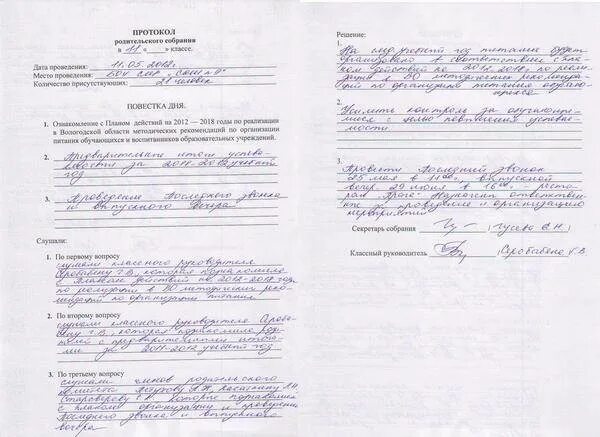 ПРОТОКОЛ
родительского собрания
в 11 «___» классе.
Дата проведения: 11.05.2012.
Место проведения: БОУ СМР „СОШ №9"
Количество присутствующих: 21 человек
ПОВЕСТКА ДНЯ.
1. Ознакомление с Планом действий на 2012 — 2018 годы по реализации в
Вологодской области методических рекомендаций по организации
питания обучающихся и воспитанников образовательных учреждений.
2. Предварительные итоги успева-
емости за 2011-2012 учебный
год
3. Проведение Последнего звонка
и выпускного вечера
Слушали:
1. По первому вопросу
слушали классного руководителя
Г.В., которая познакомила
с Планом действий на 2012-2018 год
по реализации в ВО методических реко-
мендаций по организации питания.
2. По второму вопросу
слушали классного руководителя
Г.В., которая познакомила род
с предварительными итогами
за 2011-2012 учебный год
3. По третьему вопросу
слушали членов родительского
комитета
которые познакомили
с планом организации и проведения
Последнего звонка и выпускного
вечера
Решение:
1.
На след. учебный год питание будет
организовано в соответствии с План
действий на 2012-2018 по реали-
зации в ВО методических рекоменда-
ций по организации питания обучаю-
щихся
2.
Усилить контроль за обучающи-
мися с целью повышения успева-
емости
3.
Провести Последний звонок
25 мая в 11 00, выпускной
вечер 29 июня в 16 00 - ресто-
ран Прага. Назначить ответствен-
ных за проведение и организацию
мероприятий
Секретарь собрания
Классный руководитель